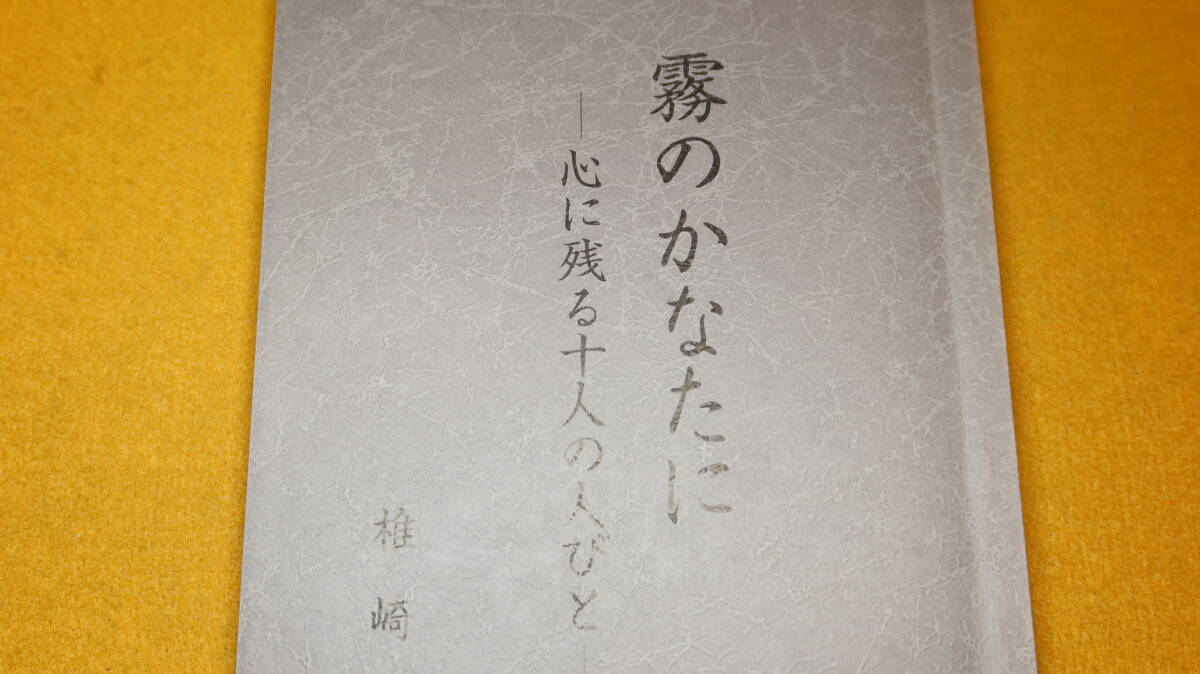 霧のかなたに
―心に残る十人の人びと―
椎崎